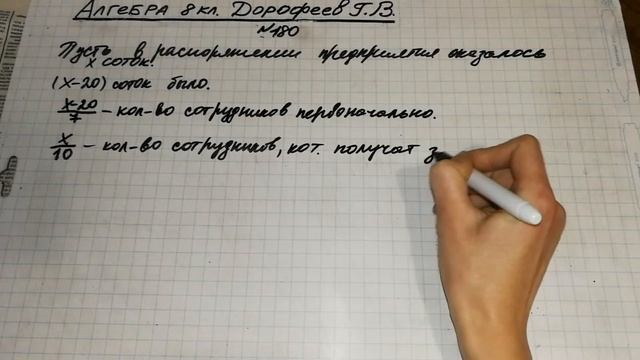 АЛГЕБРА 8 кл. ДОРОФЕЕВ Г.В.
№180
Пусть в распоряжении предприятия оказалось
x соток.
(x-20) соток было.
x-20/7 - кол-во сотрудников первоначально.
x/10 - кол-во сотрудников, кот. получат з